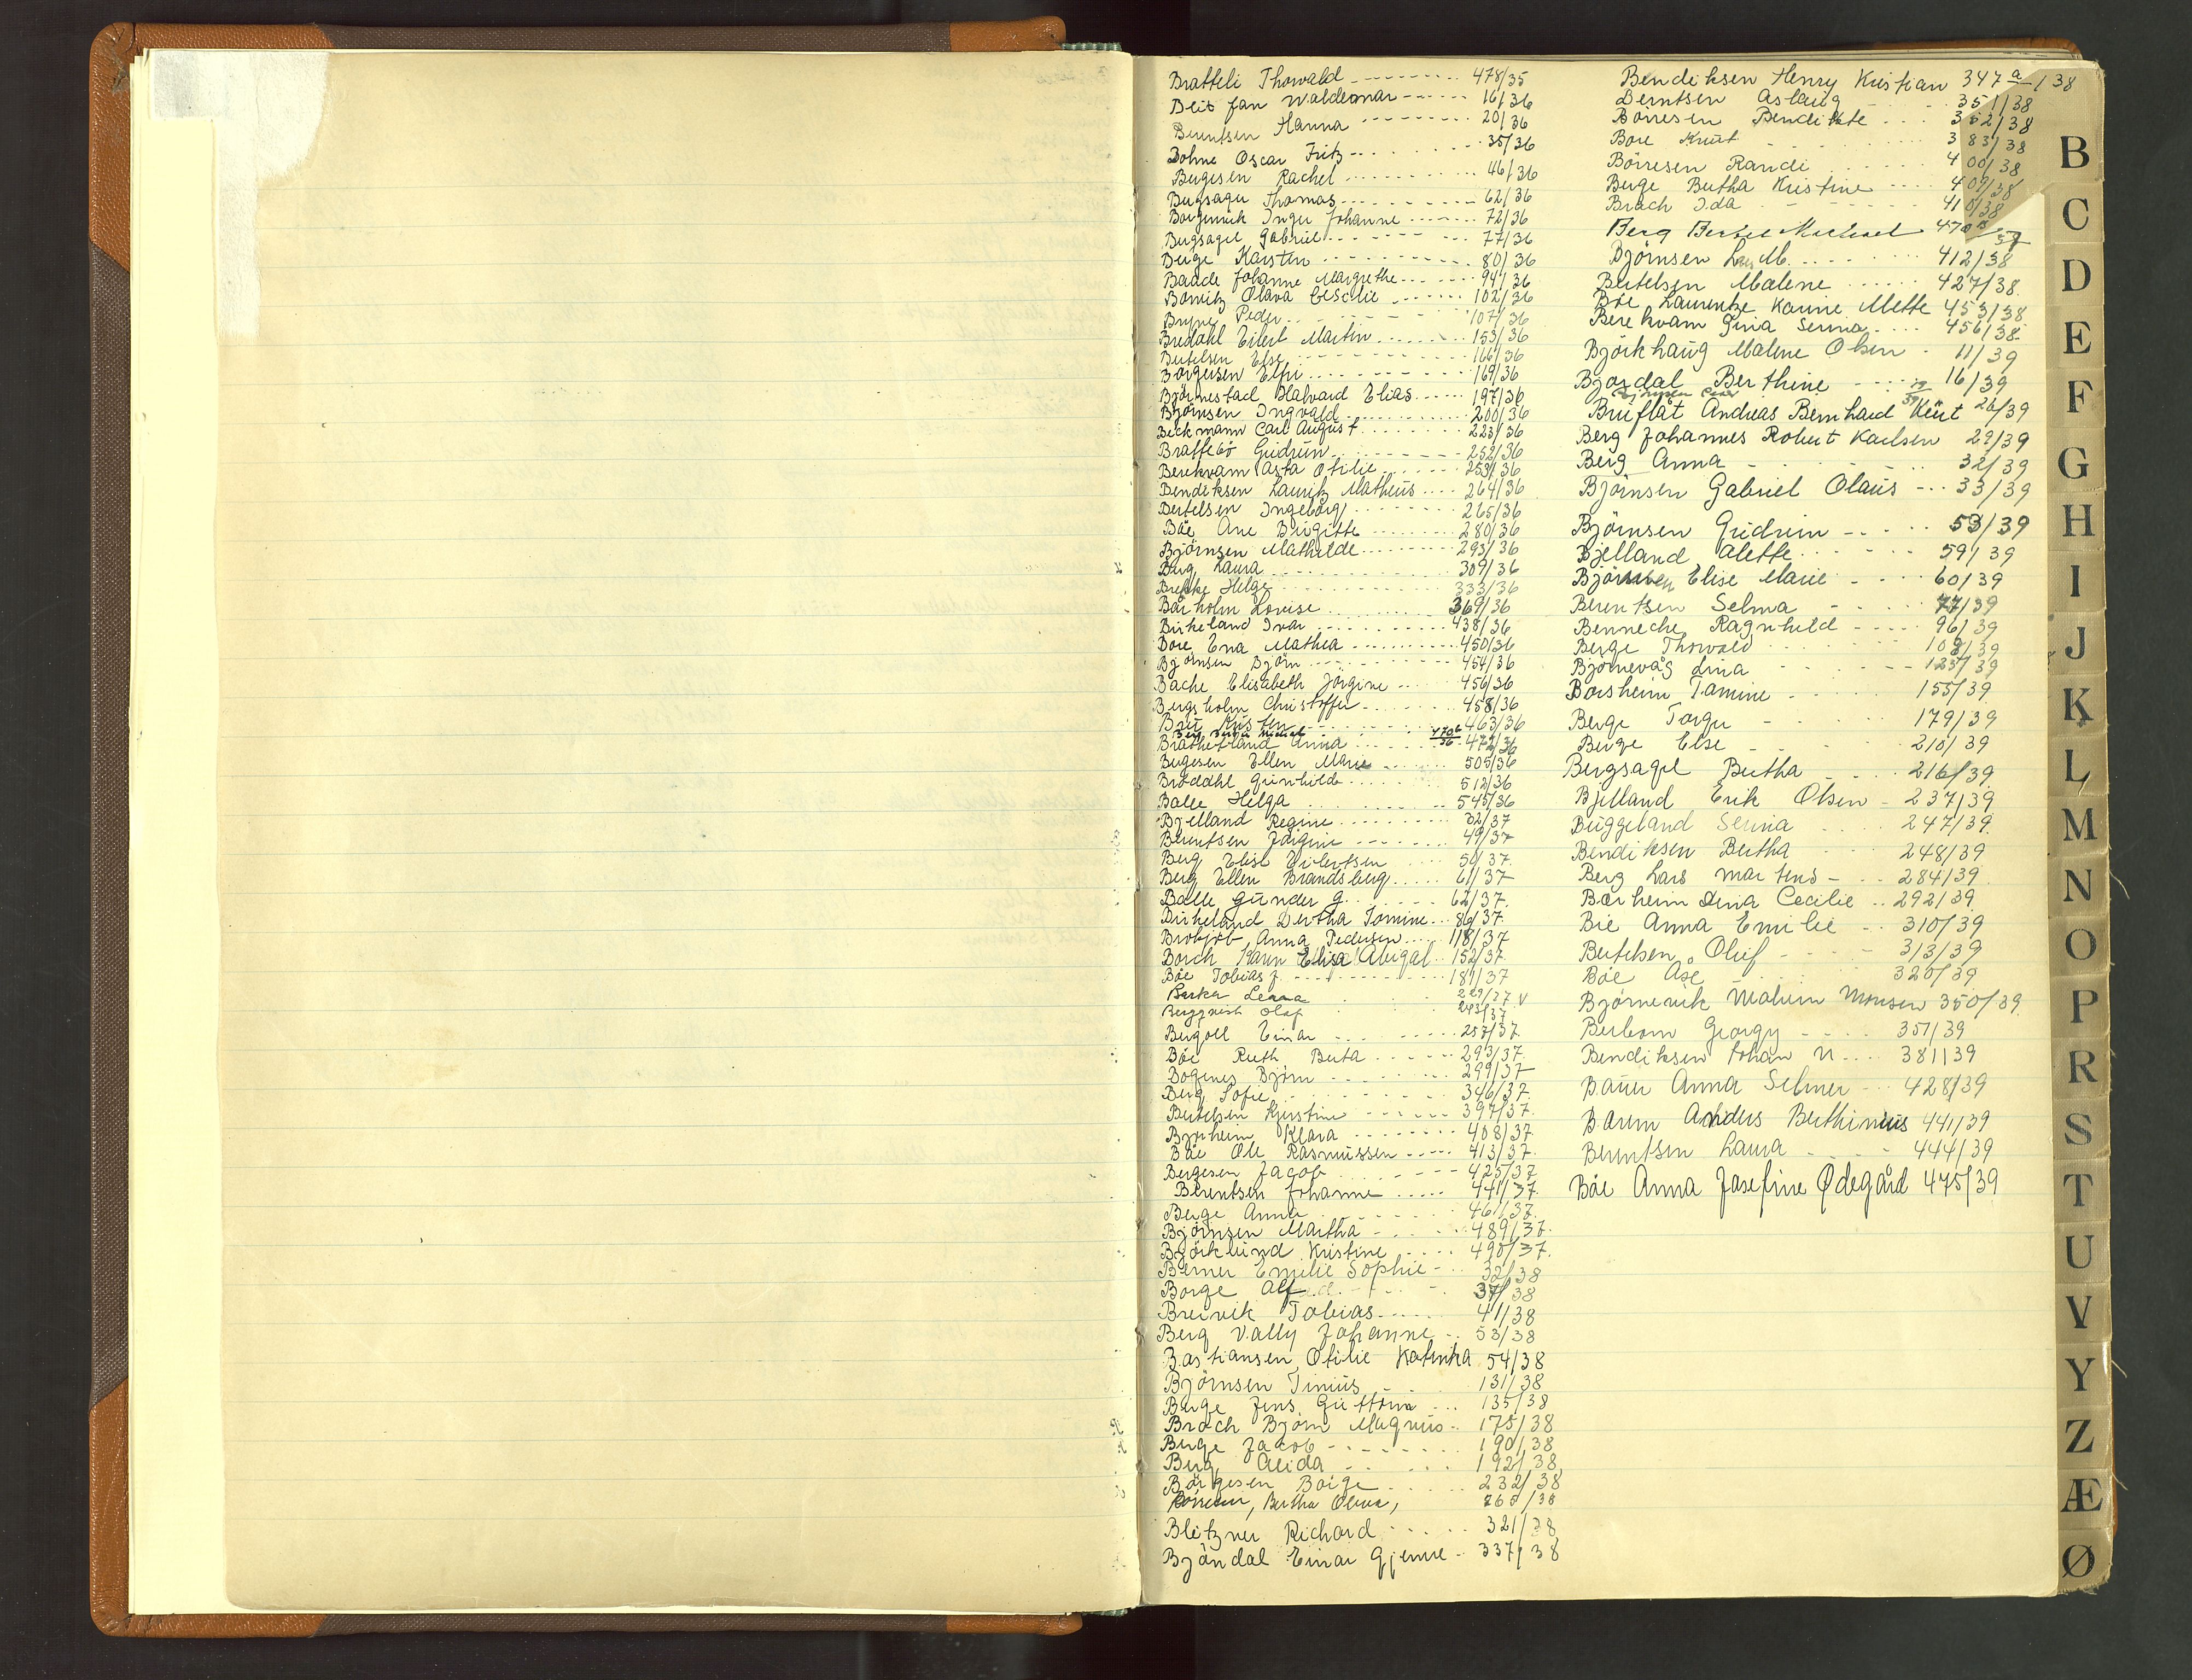 Bratteli Thorvald 478/35
Beis Jan Waldemar 16/36
Berentsen Hanna 20/36
Bohne Oscar Fritz 35/36
Bergesen Rachel 46/36
Bergsager Thomas 62/36
Borgenvik Inger Johanne 72/36
Bergsagel Gabriel 77/36
Berge Karsten 80/36
Baade Johanne Margrethe 94/36
Borwitz Olava Cescilie 102/36
Bryne Peder 107/36
Bredahl Eilert Martin 153/36
Bertelsen Else 166/36
Børgesen Elfri 169/36
Bjørnestad Halvard Elias 197/36
Bjørnsen Ingvald 200/36
Beckmann Carl August 223/36
Brattebö Gudrun 252/36
Berekvam Asta Otilie 253/36
Bendiksen Lauritz Matheus 264/36
Bertelsen Ingeborg 265/36
Bøe Ane Birgitte 280/36
Bjørnsen Mathilde 293/36
Berg Laura 309/36
Brekke Helge 333/36
Bårholm Lovise 369/36
Birkeland Ivar 438/36
Bore Ena Mathea 450/36
Bjørnsen Bjørn 454/36
Bache Elisabeth Jørgine 456/36
Bergsholm Christoffer 458/36
463/36
Brathetland Anna 472/36
Bergesen Ellen Marie 505/36
Brøddahl Gunhilde 512/36
Balle Helga 545/36
Bjelland Regine 32/37
Berentsen Jørgine 49/37
Berg Elise Eilertsen 50/37
Berg Ellen Brandsberg 61/37
Balle Gunder G. 62/37
Birkeland Bertha Tomine 86/37
Anna Pedersen 118/37
Borch Karen Elisa Abigal 152/37
Bøe Tobias J. 181/37
Berka Leana 229/37 V
Bergqvist Olaf 243/37
Bergoll Einar 257/37
Bøe Ruth Berta 293/37
Bogenes Bjørn 299/37
Berg Sofie 346/37
Bertelsen Kjerstine 397/37
Bjorheim Klara 408/37
Bøe Ole Rasmussen 413/37
Bergesen Jacob 425/37
Berentsen Johanne 441/37
Berge Anna 461/37
Bjørnsen Martha 489/37
Björklund Kristine 490/37
Berner Emilie Sophie 32/38
Borge Alf 37/38
Breivik Tobias 41/38
Berg Vally Johanne 53/38
Bastiansen, Otilie Katinka 54/38
Bjørnsen Tinius 131/38
Berge Jens Guttorm 135/38
Broch Bjørn Magnus 175/38
Berge Jacob 190/38
Berg Alida 192/38
Børgesen Børge 232/38
Börresen, Bertha Oline, 265/38
Bletzner Richard 321/38
Bjøndal Einar Gjemre 337/38
Bendiksen Henry Kristian 347 a/38
Berntsen Aslaug 351/38
Börresen Bendikte 352/38
Bore Knut 383/38
Börresen Randi 400/38
Berge Bertha Kristine 409/38
Brach Ida 410/38
Berg Michael 470
Bjørnsen Lars M. 412/38
Bertelsen Malene 427/38
Bøe Laurentze Karine Mette 453/38
Berekvam Gina Serina 456/38
Björkhaug Malene Olsen 11/39
Bjordal Berthine 16/39
Bruflåt Andreas Bernhard Knut 26/39
Berg Johannes Robert Karlsen 29/39
Berg Anna 32/39
Bjørnsen Gabriel Olaus 33/39
Bjørnsen Gudrun 53/39
Bjelland Alette 59/39
Bjørnsen Elise Marie 60/39
Berentsen Selma 77/39
Benneche Ragnhild 96/39
Berge Thorvald 108/39
Bjørnevåg Lina 123/39
Borsheim Tomine 155/39
Berge Torger 179/39
Berge Else 210/39
Bergsagel Bertha 216/39
Bjelland Erik Olsen 237/39
Buggeland Serina 247/39
Bendiksen Bertha 248/39
Berg Lars Martens 284/39
Bærheim Dina Cecilie 292/39
Bie Anna Emilie 310/39
Bertelsen Oluf 313/39
Bøe Åse 320/39
Bjørnevik Malvin Monsen 350/39
Berbom Georgy 351/39
Bendiksen Johan N 381/39
Bauer Anna Selmer 428/39
Barem Anders Berthinius 441/39
Berentsen Laura 444/39
Bøe Anna Josefine Ødegård 475/39
B
C
D
E
F
G
H
I
J
K
L
M
N
O
P
R
S
T
U
V
Y
Z
Æ
Ø